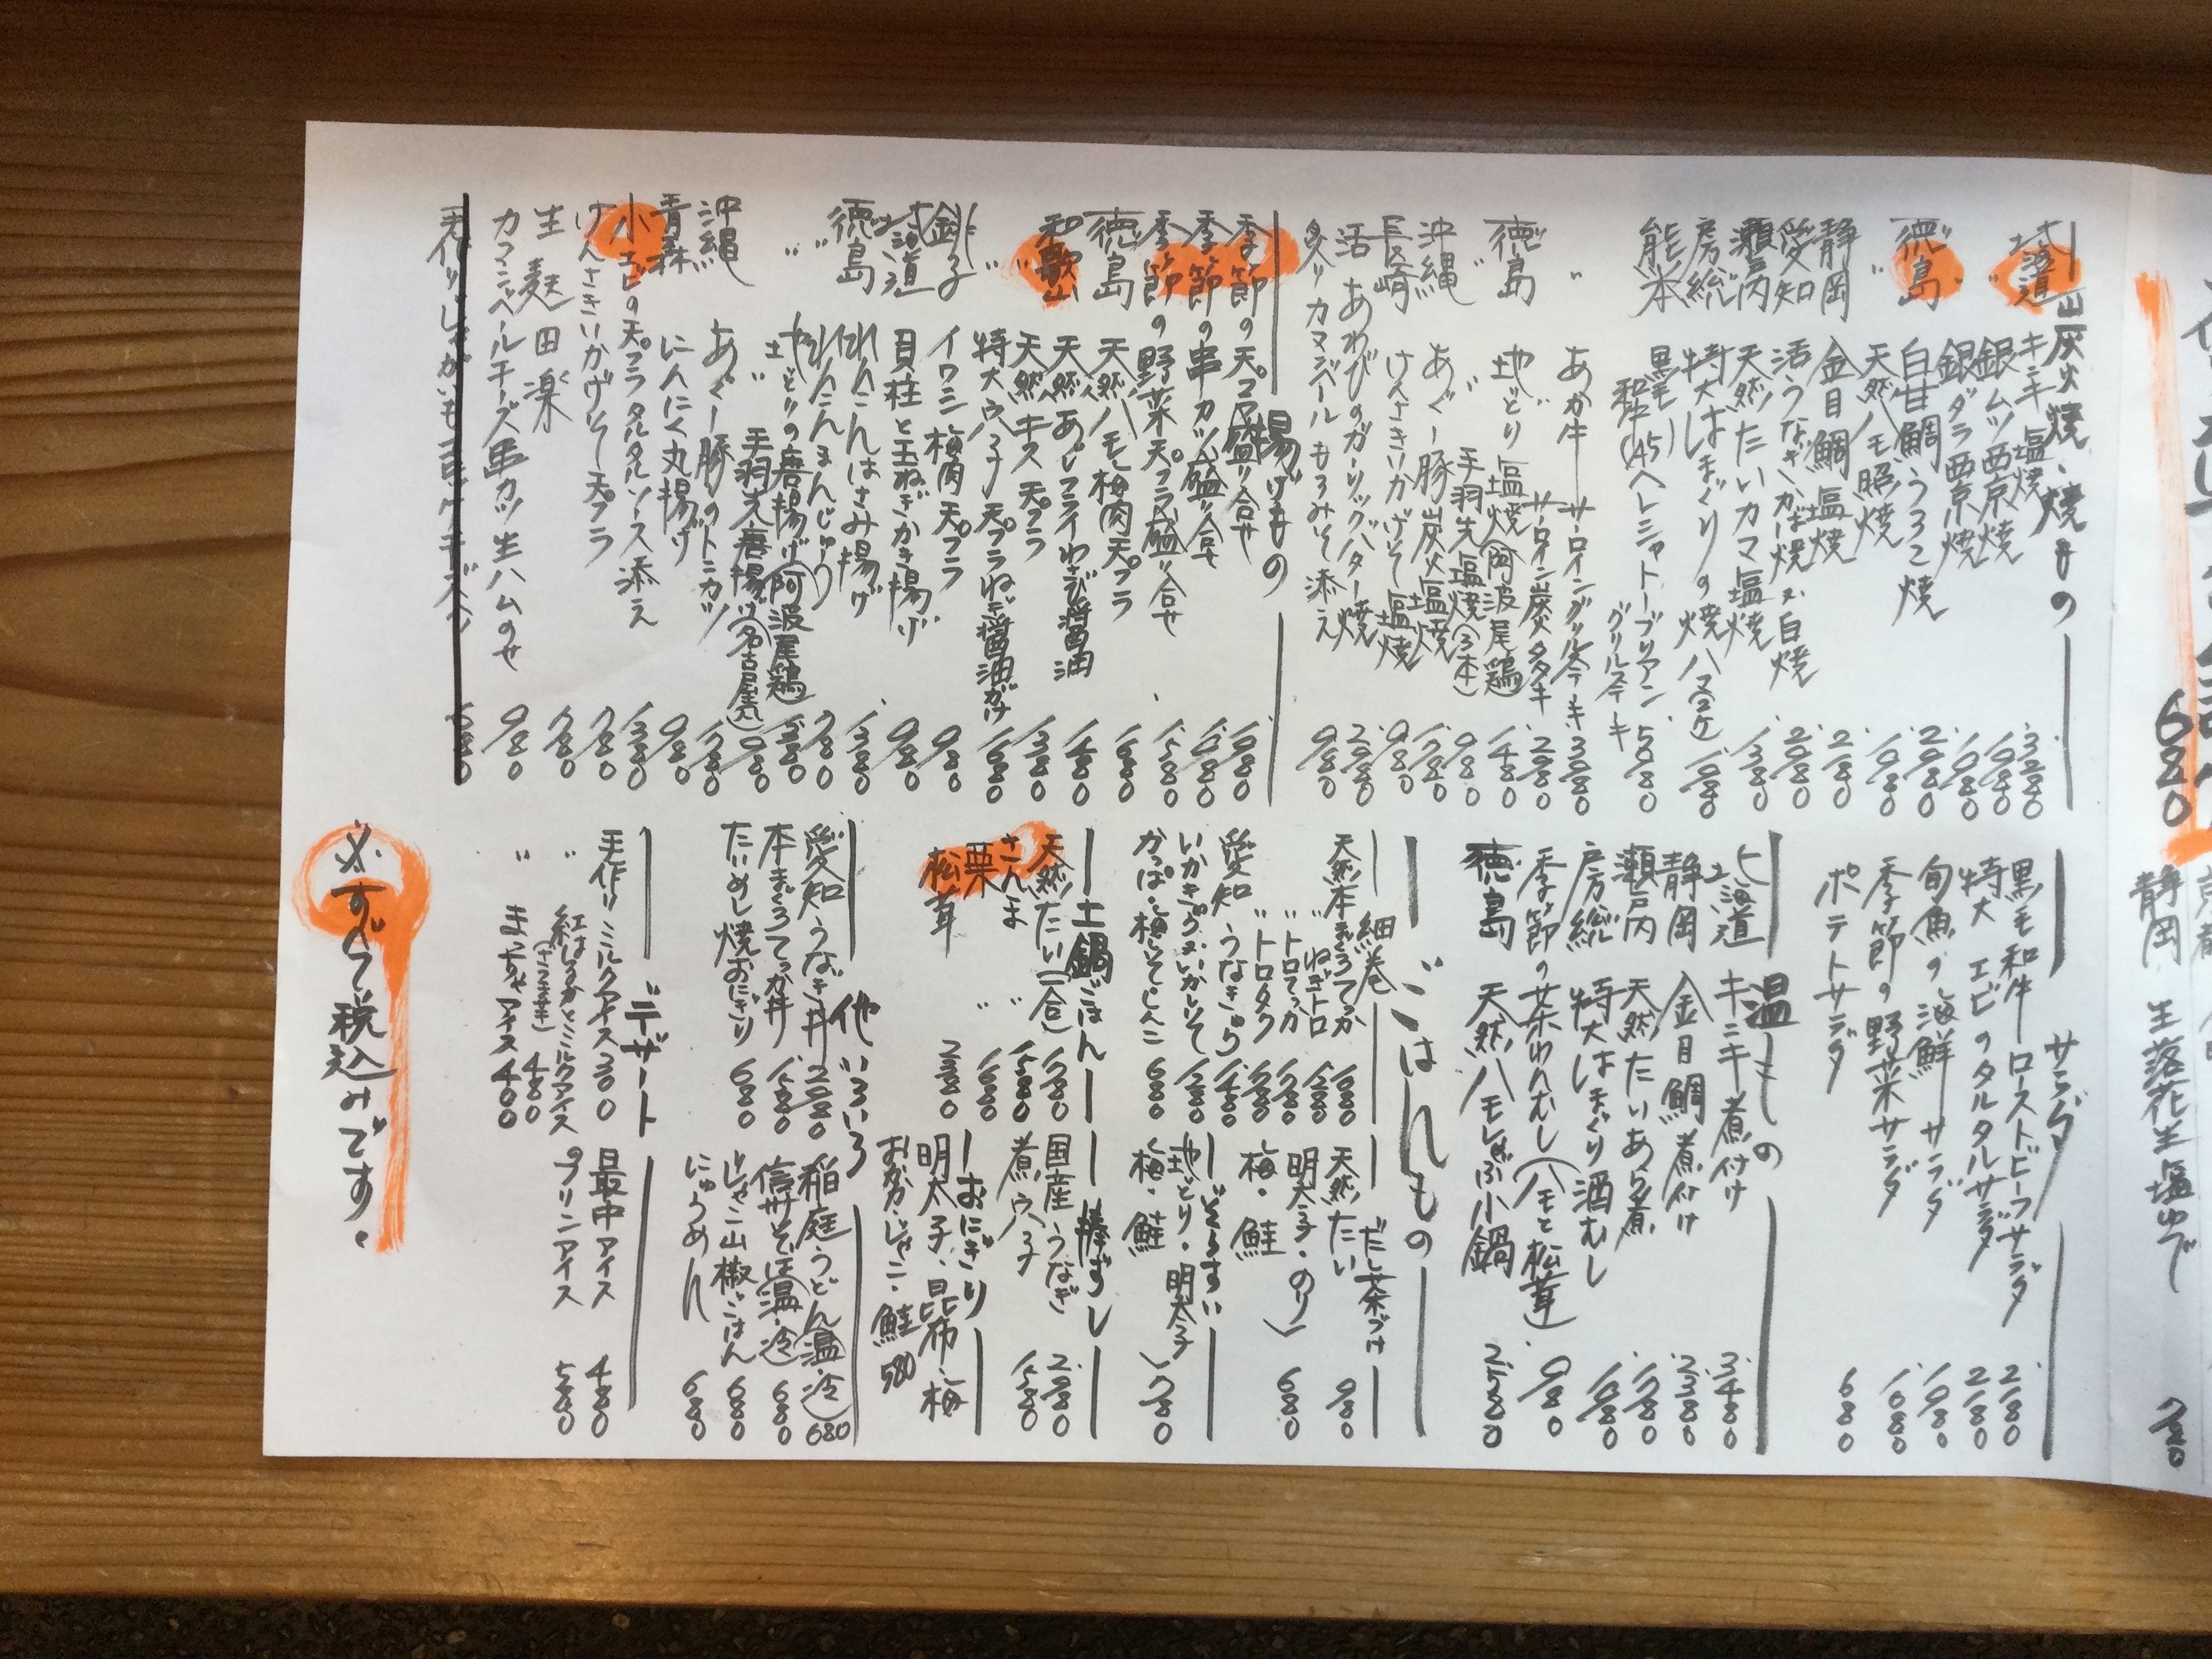 炭火焼、焼もの
北海道 キンキ塩焼 3280
〃 銀ムツ西京焼 1080
〃 銀ダラ西京焼 1080
徳島 白甘鯛うろこ焼 2080
〃 天然ハモ照焼 1080
静岡 金目鯛塩焼 2180
愛知 活うなぎかば焼又は白焼 2980
瀬戸内 天然たいカマ塩焼 1380
房総 特大はまぐりの焼ハマ(2ケ) 1080
熊本 黒毛和牛(A5)ヘレシャトーブリアン グリルステーキ 5080
〃 あか牛 サーロイングリルステーキ 3080
サーロイン炭タタキ 2080
徳島 地どり塩焼(阿波尾鶏) 1480
〃 手羽先塩焼(3本) 980
沖縄 あぐー豚炭火塩焼 1780
長崎 けんさきいかげそ塩焼 980
活あわびのガーリックバター焼 2080
炙りカマンベールもろみそ添え 980
揚げもの
季節の天プラ盛り合せ 1980
季節の串カツ盛り合せ 1980
季節の野菜天プラ盛り合せ 1580
徳島 天然ハモ梅肉天プラ 1680
〃 天然あじフライわさび醤油 1480
和歌山 天然キス天プラ 1380
〃 特大穴子天プラねぎ醤油がけ 1680
銚子 イワシ梅肉天プラ 980
北海道 貝柱と玉ねぎかき揚げ 980
徳島 れんこんはさみ揚げ 1380
〃 れんこんまんじゅう 780
〃 地どりの唐揚げ(阿波尾鶏) 1380
〃 手羽先唐揚げ(名古屋風) 980
沖縄 あぐー豚のトンカツ 1780
青森 にんにく丸揚げ 980
小エビの天プラタルタルソース添え 1380
けんさきいかげそ天プラ 780
生麩田楽 780
カマンベールチーズ串カツ生ハムのせ 980
手作りじゃがいも
680
静岡 生落花生塩ゆで 780
サラダ
黒毛和牛ローストビーフサラダ 2180
特大エビのタルタルサラダ 2180
旬魚の海鮮サラダ 1980
季節の野菜サラダ 1680
ポテトサラダ 680
温もの
北海道 キンキ煮付け 3480
静岡 金目鯛煮付け 2380
瀬戸内 天然たいあら煮 1780
房総 特大はまぐり酒むし 1080
季節の茶わんむし(ハモと松茸) 980
徳島 天然ハモしゃぶ小鍋 2580
ごはんもの
細巻
天然本まぐろてっか 1680
〃 ねぎトロ 1280
〃 トロてっか 1780
〃 トロタク 1280
愛知 うなきゅう 1480
いかきゅう又はいかしそ 1280
かっぱ・梅しそ・しんこ 680
だし茶づけ
天然たい 980
明太子・のり
梅・鮭 680
ぞうすい
地どり・明太子
梅・鮭 780
土鍋ごはん
天然たい(二合) 1780
さんま 〃 1580
栗 〃 1680
松茸 〃 2380
棒ずし
国産うなぎ 2980
煮穴子 1580
おにぎり
明太子、昆布、梅
おかか・じゃこ・鮭 580
他いろいろ
愛知うなぎ丼 2080
本まぐろてっか丼 1580
たいめし焼おにぎり 680
稲庭うどん(温・冷) 680
信州そば(温・冷) 680
じゃこ山椒ごはん 680
にゅうめん 680
デザート
手作りミルクアイス 300
〃 紅はるかとミルクアイス(さつま芋) 480
〃 まっちゃアイス 400
最中アイス 480
プリンアイス 580
必ずして税込みです。